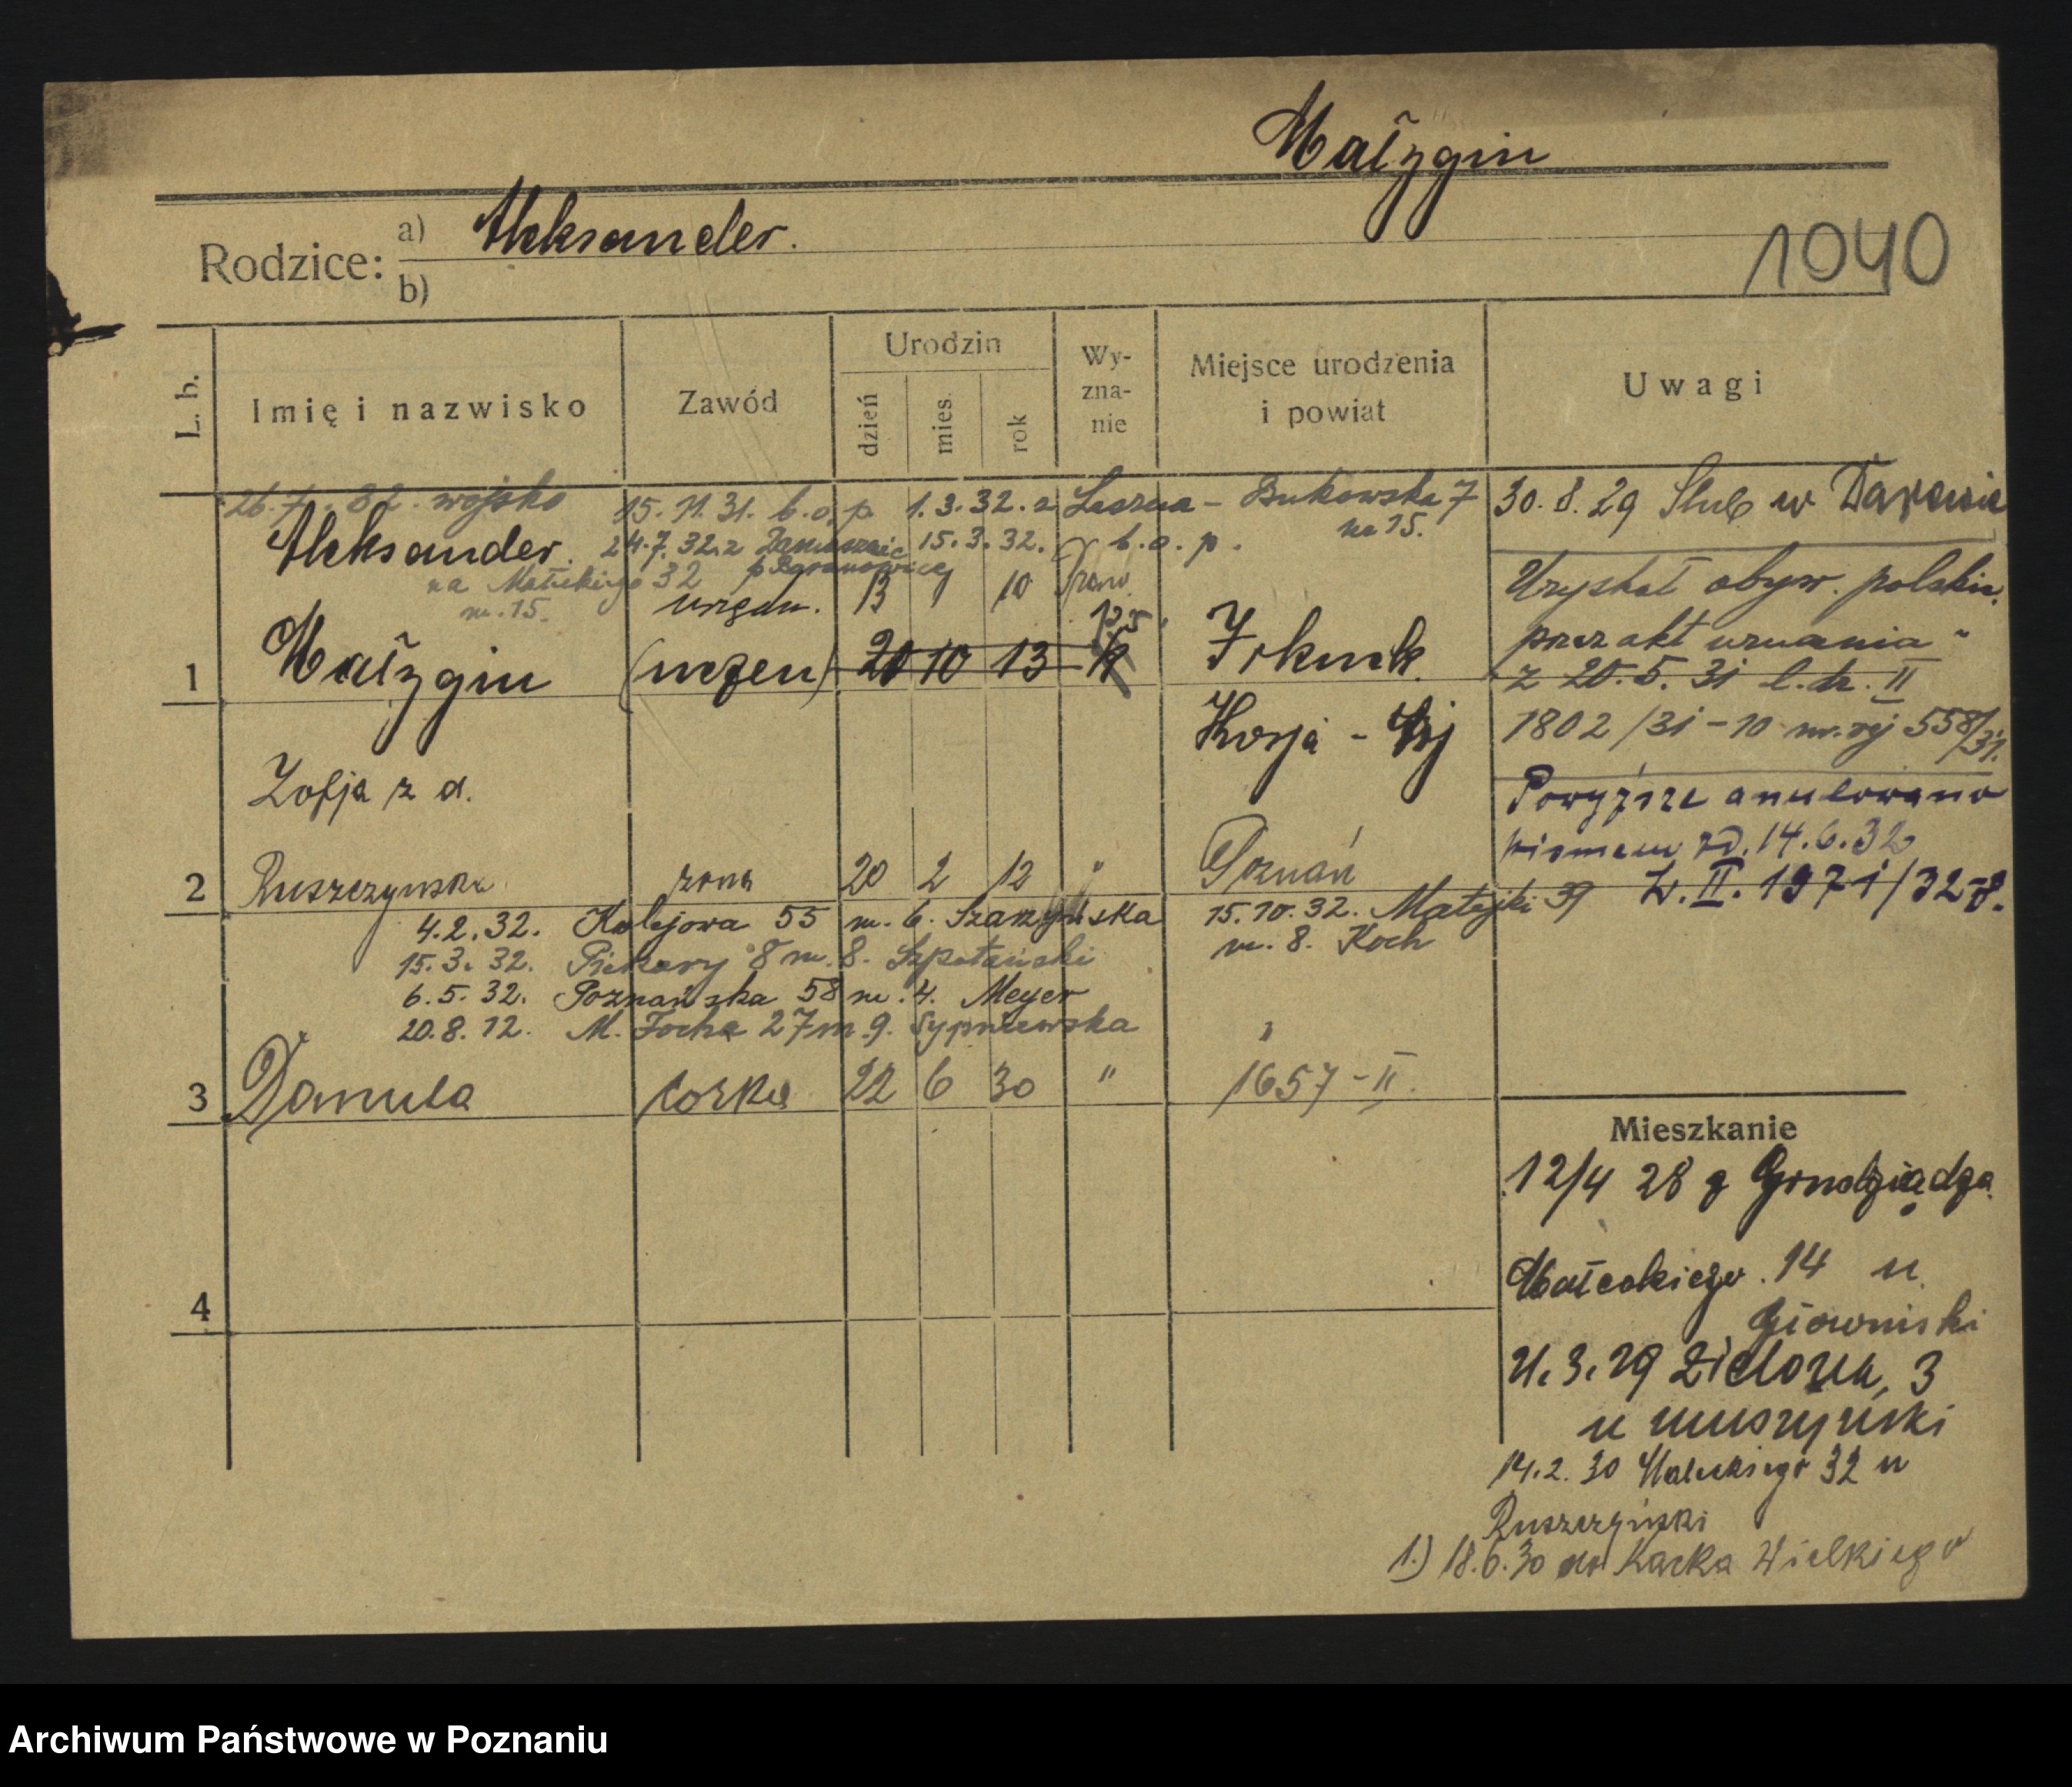 Małzgin
Rodzice: a) Aleksander.
b)
1040
L. b.
Imię i nazwisko
Zawód
Urodzin
dzień
mies.
rok
Wy-
zna-
nie
Miejsce urodzenia
i powiat
Uwagi
wojsko
15.11.31. b.o.p. 1.3.32. z Leszna - Bukowska 7
m 15.
Aleksander.
24.7.32. z 15.3.32. b.o.p.
na Małeckiego 32
m. 15.
urzędn. 13 1 10 Praw.
1 Małzgin (uczeń) 20 10 13 Irkuck
Rosja -
Zofja z d.
2 Ruszczyńska żona 20 2 12 " Poznań
4.2.32. Kolejowa 55 m. 6. Szarzyńska
15.3.32. Piekary 8 m. 8. Szpotański
6.5.32. Poznańska 58 m. 4. Meyer
20.8.12. M. Focha 27 m 9. Sypniewska
15.10.32. Matejki 39
m. 8. Koch
"
3 Danuta córka 22 6 30 " 1657-II.
4
30.8.29 Ślub w
Uzyskał obyw. polskie.
przez akt uznania
z 20.5.31 l. dz. II
1802/31-10 nr. rej 558/31.
Powyższe anulowano
pismem zd. 14.6.32
L. II. 1971/32-8.
Mieszkanie
12/4 28 z Grudziądza
Małeckiego 14 u
21.3.29 Zielona, 3
u Muszyński
14.2.30 Małeckiego 32 u
Ruszczyński
1.) 18.6.30 do Kącka Wielkiego
Archiwum Państwowe w Poznaniu